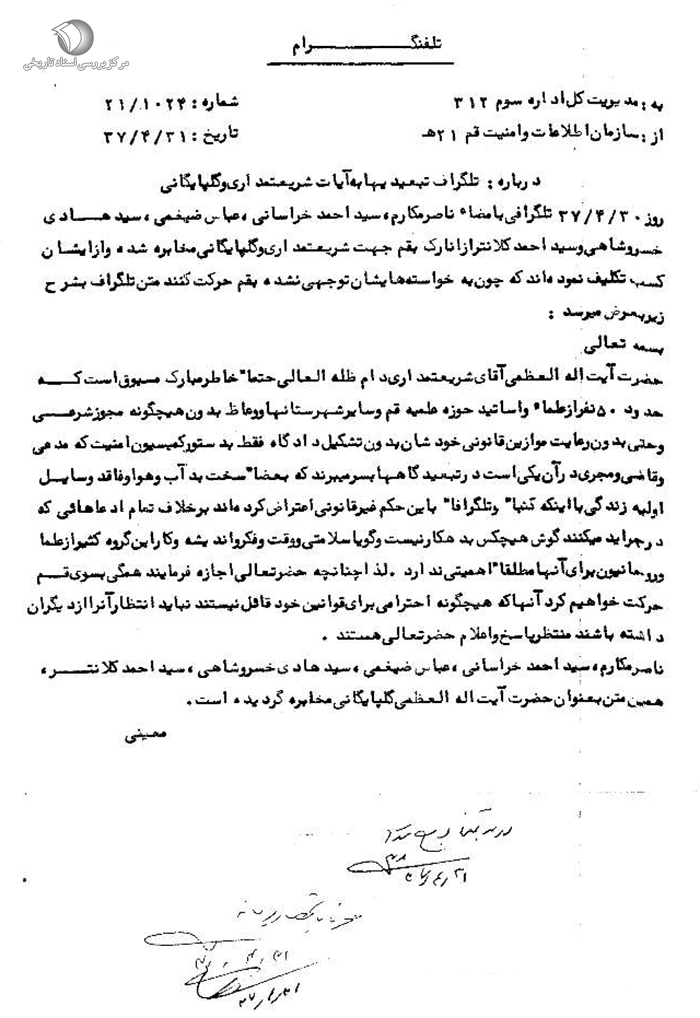 مرکز بررسی اسناد تاریخی
تلفنگـــــــــرام
به : مدیریت کل اداره سوم ۳۱۲ شماره : ۲۱/۱۰۲۴
از : سازمان اطلاعات و امنیت قم ۲۱هـ تاریخ : ۳۷/۴/۳۱
درباره : تلگراف تبعیدیها به آیات شریعتمداری و گلپایگانی
روز ۳۷/۴/۳۰ تلگرافی بامضاء ناصرمکارم، سید احمد خراسانی، عباس ضیغمی، سید هـادی
خسروشاهی و سید احمد کلانتر از انارک بقم جهت شریعتمداری و گلپایگانی مخابره شده و از ایشان
کسب تکلیف نموده‌اند که چون به خواسته‌هایشان توجهی نشده بقم حرکت کنند متن تلگراف بشرح
زیر بعرض میرسد :
بسمه تعالی
حضرت آیت اله العظمی آقای شریعتمداری دام ظله العالی حتما" خاطر مبارک مسبوق است کـه
حدود ۵۰ نفر از علماء واساتید حوزه علمیه قم و سایر شهرستانها و وعاظ بدون هیچگونه مجوز شرعـی
وحتی بدون رعایت موازین قانونی خودشان بدون تشکیل دادگاه فقط بدستور کمیسیون امنیت که مدعی
وقاضی و مجری در آن یکی است در تبعیدگاهها بسر میبرند که بعضا" سخت بد آب وهوا وفاقد وسایـل
اولیه زندگی با اینکه کتبا" وتلگرافا" باین حکم غیرقانونی اعتراض کرده‌اند برخلاف تمام ادعاهائی که
در جراید میکنند گوش هیچکس بدهکار نیست و گویا سلامتی و وقت و فکر و اندیشه و کار این گروه کثیر از علما
وروحانیون برای آنها مطلقا" اهمیتی ندارد . لذا چنانچه حضرتعالی اجازه فرمایند همگی بسوی قـم
حرکت خواهیم کرد آنها که هیچگونه احترامی برای قوانین خود قائل نیستند نباید انتظار آنرا از دیگران
داشته باشند منتظر پاسخ و اعلام حضرتعالی هستند .
ناصرمکارم، سید احمد خراسانی، عباس ضیغمی، سید هادی خسروشاهی، سید احمد کلانتـــر،
همین متن بعنوان حضرت آیت اله العظمی گلپایگانی مخابره گردیده است .
معینی
۳۷/۴/۳۱